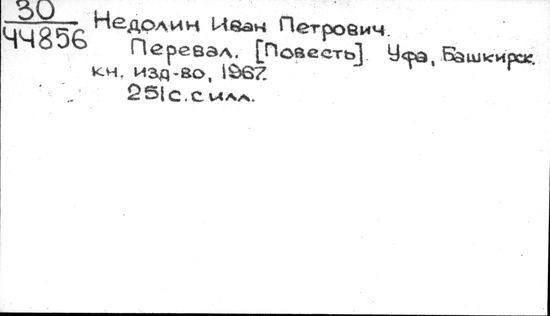 30
44856
Недолин Иван Петрович.
Перевал. [Повесть]. Уфа, Башкирск.
кн. изд-во, 1967.
251с. с илл.